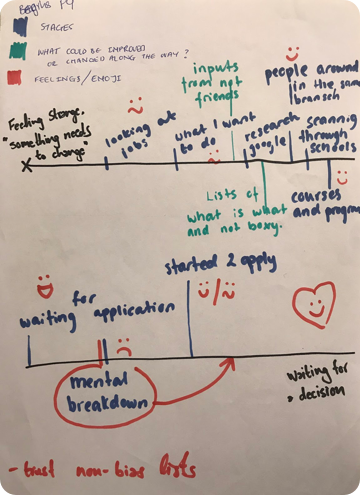 STAGES
WHAT COULD BE IMPROVED
OR CHANGED ALONG THE WAY?
FEELINGS/EMOJI
Feeling strange,
"something needs
to change"
looking at
jobs
what I want
to do
inputs
from not
friends
research
google
people around
in the same
branch
scanning
through
schools
Lists of
what is what
and not boxy.
courses
and programs
waiting for
application
mental
breakdown
started 2 apply
waiting for
decision
- trust non-bias lists